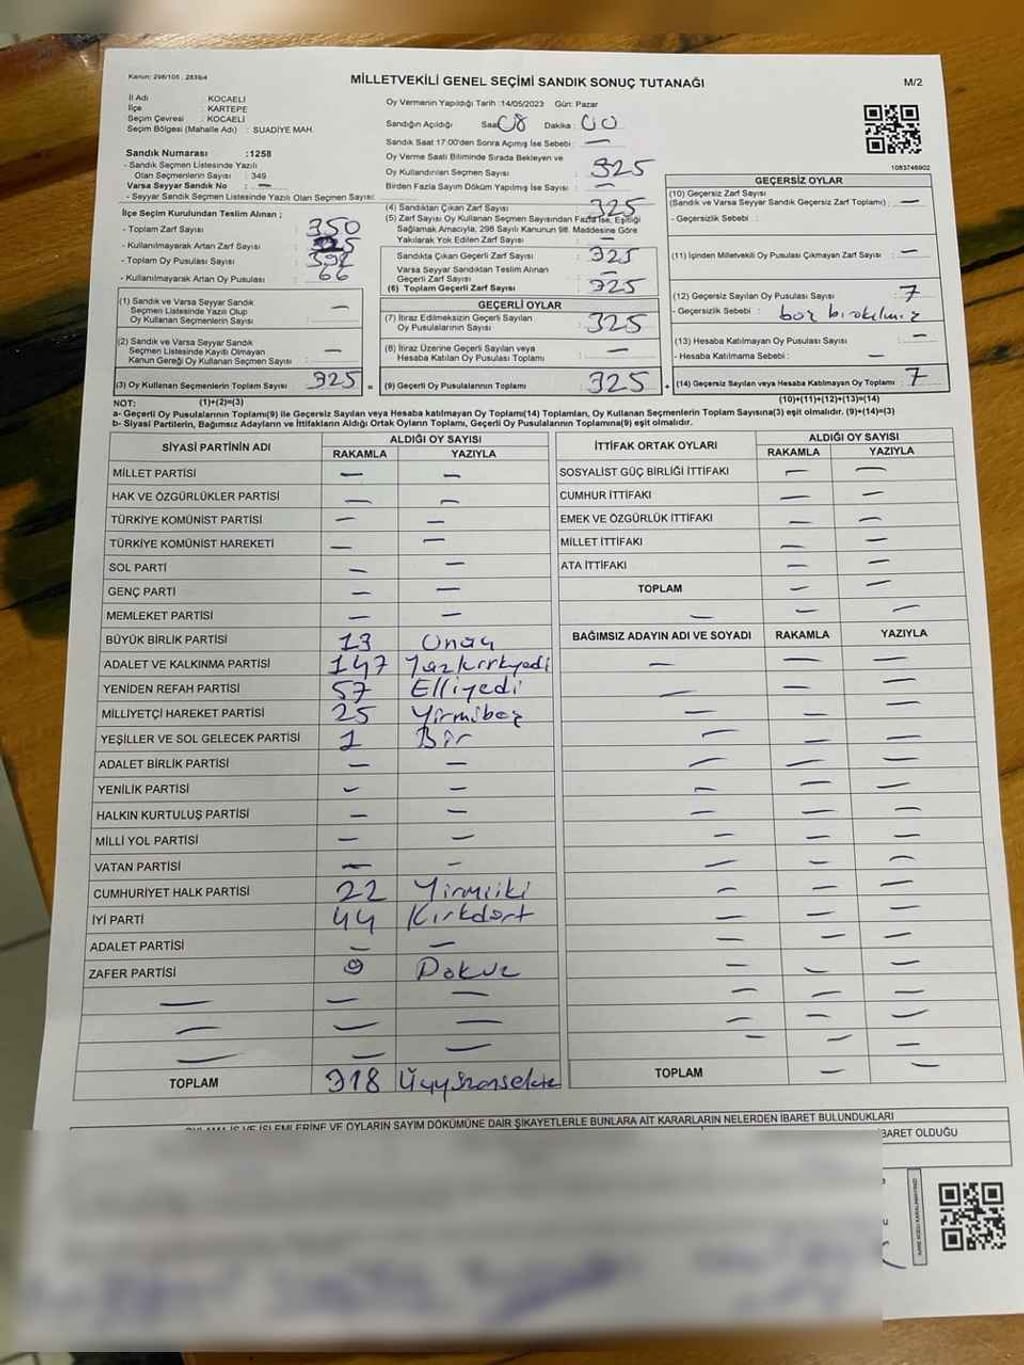 Kanun: 298/105, 2839/4
MİLLETVEKİLİ GENEL SEÇİMİ SANDIK SONUÇ TUTANAĞI
M/2
İl Adı : KOCAELİ
İlçe : KARTEPE
Seçim Çevresi : KOCAELİ
Seçim Bölgesi (Mahalle Adı) : SUADİYE MAH.
Sandık Numarası :1258
- Sandık Seçmen Listesinde Yazılı
Olan Seçmenlerin Sayısı : 349
Varsa Seyyar Sandık No : —
- Seyyar Sandık Seçmen Listesinde Yazılı Olan Seçmen Sayısı:
İlçe Seçim Kurulundan Teslim Alınan ;
- Toplam Zarf Sayısı : 350
- Kullanılmayarak Artan Zarf Sayısı :
- Toplam Oy Pusulası Sayısı :
- Kullanılmayarak Artan Oy Pusulası : 66
(1) Sandık ve Varsa Seyyar Sandık
Seçmen Listesinde Yazılı Olup
Oy Kullanan Seçmenlerin Sayısı : —
(2) Sandık ve Varsa Seyyar Sandık
Seçmen Listesinde Kayıtlı Olmayan
Kanun Gereği Oy Kullanan Seçmen Sayısı : —
(3) Oy Kullanan Seçmenlerin Toplam Sayısı : 325 =
Oy Vermenin Yapıldığı Tarih :14/05/2023 Gün: Pazar
Sandığın Açıldığı Saat 08 Dakika : 00
Sandık Saat 17.00'den Sonra Açılmış İse Sebebi : —
Oy Verme Saati Bitiminde Sırada Bekleyen ve
Oy Kullandırılan Seçmen Sayısı : 325
Birden Fazla Sayım Döküm Yapılmış İse Sayısı : —
(4) Sandıktan Çıkan Zarf Sayısı : 325
(5) Zarf Sayısı Oy Kullanan Seçmen Sayısından Fazla ise, Eşitliği
Sağlamak Amacıyla, 298 Sayılı Kanunun 98. Maddesine Göre
Yakılarak Yok Edilen Zarf Sayısı : —
Sandıkta Çıkan Geçerli Zarf Sayısı : 325
Varsa Seyyar Sandıktan Teslim Alınan
Geçerli Zarf Sayısı : —
(6) Toplam Geçerli Zarf Sayısı : 325
GEÇERLİ OYLAR
(7) İtiraz Edilmeksizin Geçerli Sayılan
Oy Pusulalarının Sayısı : 325
(8) İtiraz Üzerine Geçerli Sayılan veya
Hesaba Katılan Oy Pusulası Toplamı : —
(9) Geçerli Oy Pusulalarının Toplamı : 325 +
1083748902
GEÇERSİZ OYLAR
(10) Geçersiz Zarf Sayısı
(Sandık ve Varsa Seyyar Sandık Geçersiz Zarf Toplamı) : —
- Geçersizlik Sebebi :
(11) İçinden Milletvekili Oy Pusulası Çıkmayan Zarf Sayısı : —
(12) Geçersiz Sayılan Oy Pusulası Sayısı : 7
- Geçersizlik Sebebi : boş bırakılmış
(13) Hesaba Katılmayan Oy Pusulası Sayısı : —
- Hesaba Katılmama Sebebi : —
(14) Geçersiz Sayılan veya Hesaba Katılmayan Oy Toplamı : 7
NOT: (1)+(2)=(3) (10)+(11)+(12)+(13)=(14)
a- Geçerli Oy Pusulalarının Toplamı(9) ile Geçersiz Sayılan veya Hesaba katılmayan Oy Toplamı(14) Toplamları, Oy Kullanan Seçmenlerin Toplam Sayısına(3) eşit olmalıdır. (9)+(14)=(3)
b- Siyasi Partilerin, Bağımsız Adayların ve İttifakların Aldığı Ortak Oyların Toplamı, Geçerli Oy Pusulalarının Toplamına(9) eşit olmalıdır.
SİYASİ PARTİNİN ADI ALDIĞI OY SAYISI
RAKAMLA YAZIYLA
MİLLET PARTİSİ — —
HAK VE ÖZGÜRLÜKLER PARTİSİ — —
TÜRKİYE KOMÜNİST PARTİSİ — —
TÜRKİYE KOMÜNİST HAREKETİ — —
SOL PARTİ — —
GENÇ PARTİ — —
MEMLEKET PARTİSİ — —
BÜYÜK BİRLİK PARTİSİ 13 Onüç
ADALET VE KALKINMA PARTİSİ 147 Yüzkırkyedi
YENİDEN REFAH PARTİSİ 57 Elliyedi
MİLLİYETÇİ HAREKET PARTİSİ 25 Yirmibeş
YEŞİLLER VE SOL GELECEK PARTİSİ 1 Bir
ADALET BİRLİK PARTİSİ — —
YENİLİK PARTİSİ — —
HALKIN KURTULUŞ PARTİSİ — —
MİLLİ YOL PARTİSİ — —
VATAN PARTİSİ — —
CUMHURİYET HALK PARTİSİ 22 Yirmiiki
İYİ PARTİ 44 Kırkdört
ADALET PARTİSİ — —
ZAFER PARTİSİ 9 Dokuz
— — —
— — —
— — —
TOPLAM 318 Üçyüzonsekiz
İTTİFAK ORTAK OYLARI ALDIĞI OY SAYISI
RAKAMLA YAZIYLA
SOSYALİST GÜÇ BİRLİĞİ İTTİFAKI — —
CUMHUR İTTİFAKI — —
EMEK VE ÖZGÜRLÜK İTTİFAKI — —
MİLLET İTTİFAKI — —
ATA İTTİFAKI — —
TOPLAM — —
— — —
BAĞIMSIZ ADAYIN ADI VE SOYADI RAKAMLA YAZIYLA
TOPLAM — —
OYLAMA İŞ VE İŞLEMLERİNE VE OYLARIN SAYIM DÖKÜMÜNE DAİR ŞİKAYETLERLE BUNLARA AİT KARARLARIN NELERDEN İBARET BULUNDUKLARI
İBARET OLDUĞU